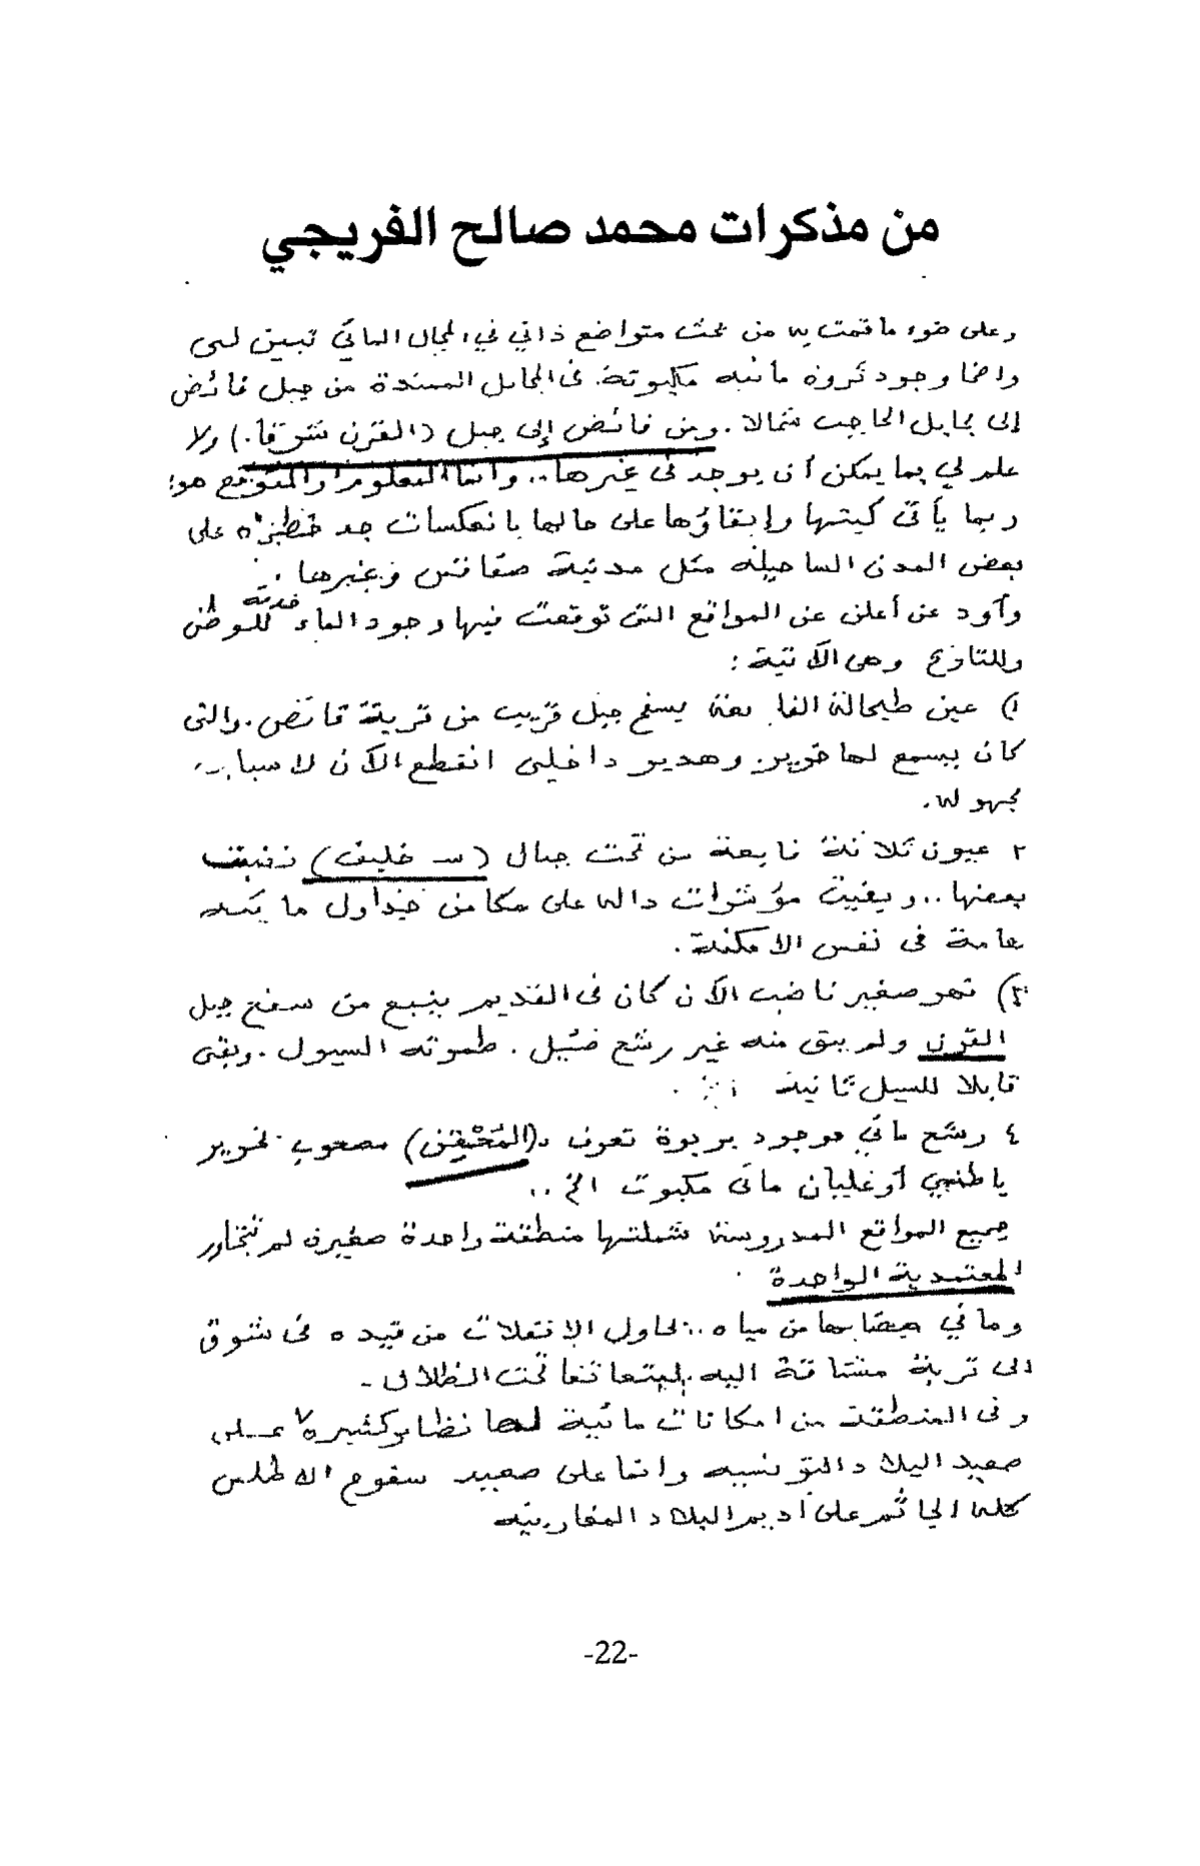 من مذكرات محمد صالح الفريجي
وعلى ضوء ما قمت به من بحث متواضع ذاتي في المجال المائي تبين لي
واضحا وجود ثروة مائية مكبوتة في الجبال الممتدة من جبل فائض
إلى جبال الحاجب شمالا . ومن فائض إلى جبل (القرن شرقا.) ولا
علم لي بما يمكن أن يوجد في غيرها.. وانما المعلوم والمتوقع هو؛
ربما يأتي كبتها وإبقاؤها على حالها بانعكسات جد خطيرة على
بعض المدن الساحلية مثل مدينة صفاقس وغيرها ..
وأود عن أعلن عن المواقع التي توقعت فيها وجود الماء خدمة للوطن
وللتاريخ وهي الآتية :
١) عين طيحالة النابعة بسفح جبل قريب من قرية فائض. والتي
كان يسمع لها خرير وهدير داخلي انقطع الآن لاسباب
مجهولة.
٢ عيون ثلاثة نابعة من تحت جبال ( خليف)
بعضها .. وبقيت مؤشرات دالة على مكامن
هامة في نفس الامكنة .
٣) نهر صغير ناضب الآن كان في القديم ينبع من سفح جبل
القرن ولم يبق منه غير رشح ضئيل . طموته السيول . وبقى
قابلا للسيل ثانية .
٤ رشح مائي موجود بربوة تعرف د(المُحْقِن) مصحوب بخرير
باطني أو غليان مائي مكبوت الخ ..
جميع المواقع المدروسة شملتها منطقة واحدة صغيرة لم تتجاور
المعتمدية الواحدة .
وما في من مياه .. يحاول الإنفلات من قيده في شوق
الى تربة مشتاقة اليه ليتعانقا تحت الظلال .
وفي المنطقة من امكانات مائية لها نظائر كثيرة على
صعيد البلاد التونسية وانما على صعيد سفوح الاطلس
كله الجاثم على أديم البلاد المغاربية
-22-